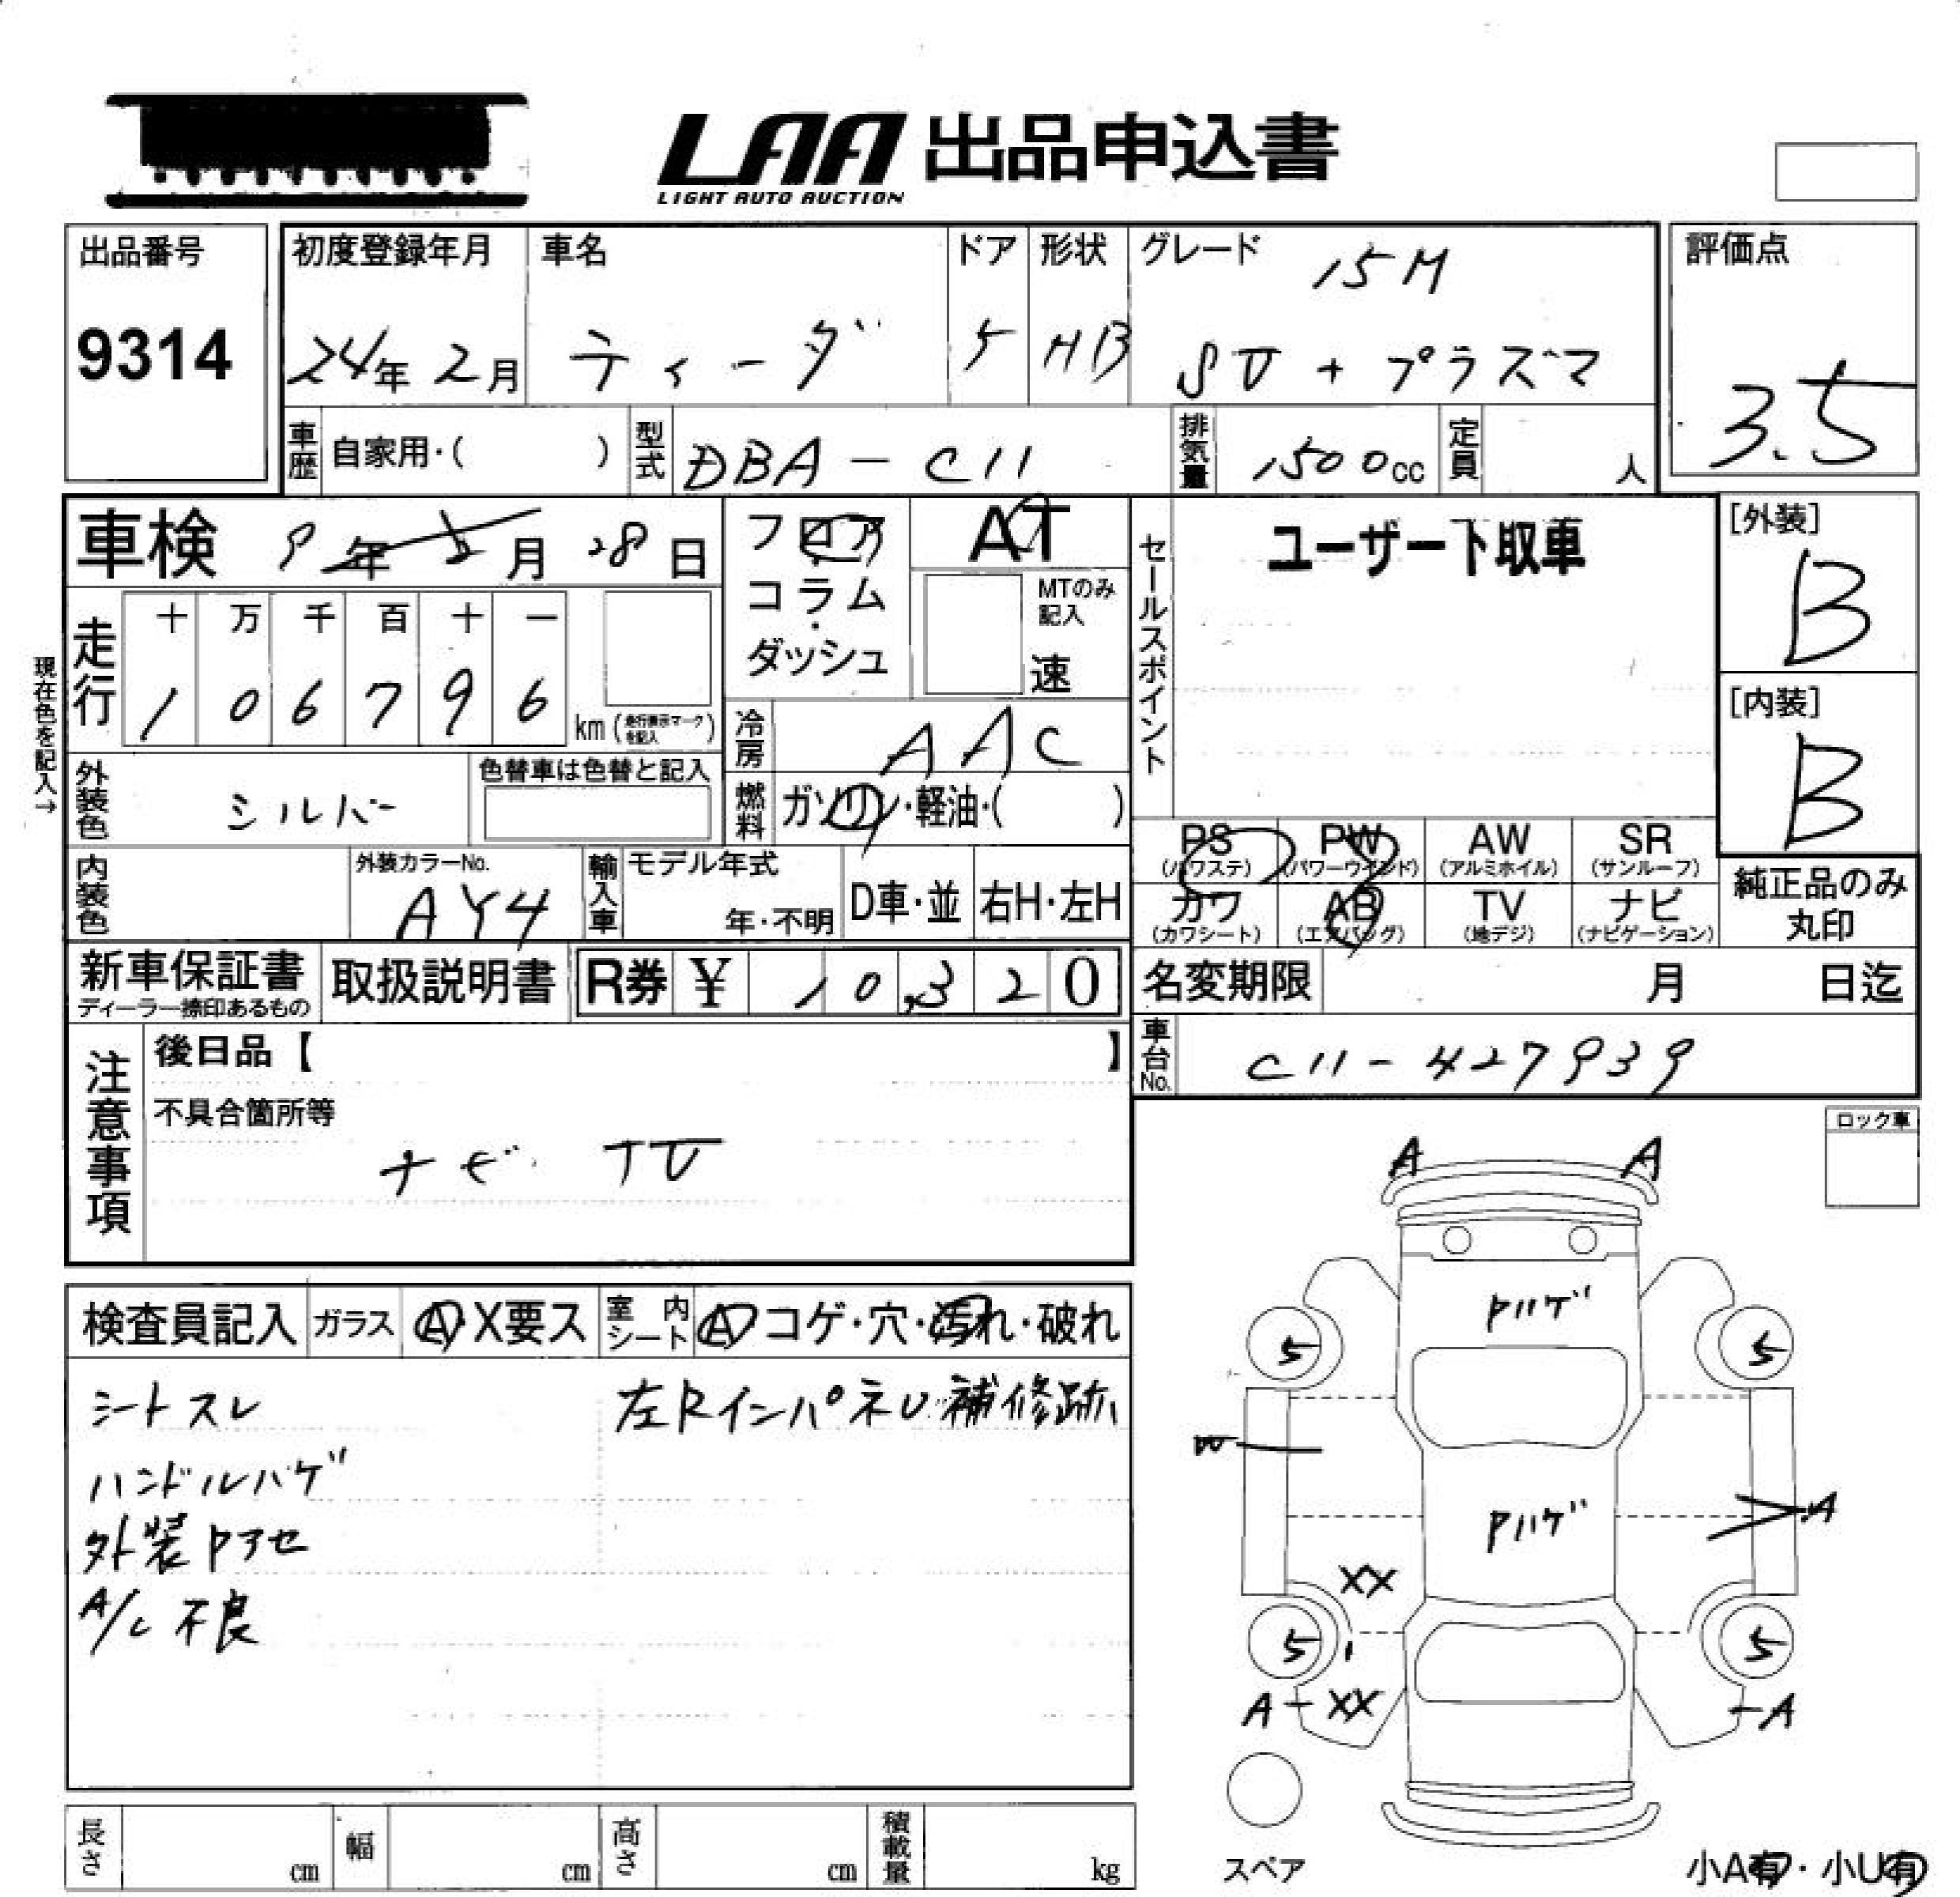 LAA 出品申込書
LIGHT AUTO AUCTION
出品番号
9314
初度登録年月
24年 2月
車名
ティーダ
ドア
5
形状
HB
グレード
15M
SV + プラズマ
評価点
3.5
車歴
自家用・( )
型式
DBA - C11
排気量
1500cc
定員
人
車検 9年 2月 28日
フロア
・
コラム
・
ダッシュ
AT
MTのみ
記入
速
セールスポイント
ユーザー下取車
[外装]
B
[内装]
B
現在色を記入→
走行
十 万 千 百 十 一
1 0 6 7 9 6
km (走行表示マークを記入)
冷房
AAC
外装色
シルバー
色替車は色替と記入
燃料
ガソリン・軽油・( )
PS
(パワステ)
PW
(パワーウインド)
AW
(アルミホイル)
SR
(サンルーフ)
カワ
(カワシート)
AB
(エアバッグ)
TV
(地デジ)
ナビ
(ナビゲーション)
純正品のみ
丸印
内装色
外装カラーNo.
AY4
輸入車
モデル年式
年・不明
D車・並
右H・左H
新車保証書
ディーラー捺印あるもの
取扱説明書
R券 ¥ 10,320
名変期限
月 日迄
車台No.
C11-427939
注意事項
後日品【 】
不具合箇所等
ナビ. TV
ロック車
検査員記入
ガラス
A X要ス
室内シート
A コゲ・穴・汚れ・破れ
シートスレ
左Rインパネル補修跡
ハンドルハゲ
外装Pアセ
A/C 不良
A A
Pハゲ
5 5
A
Pハゲ
XX
5 5
A - XX
- A
スペア
小A有・小U有
長さ
cm
幅
cm
高さ
cm
積載量
kg